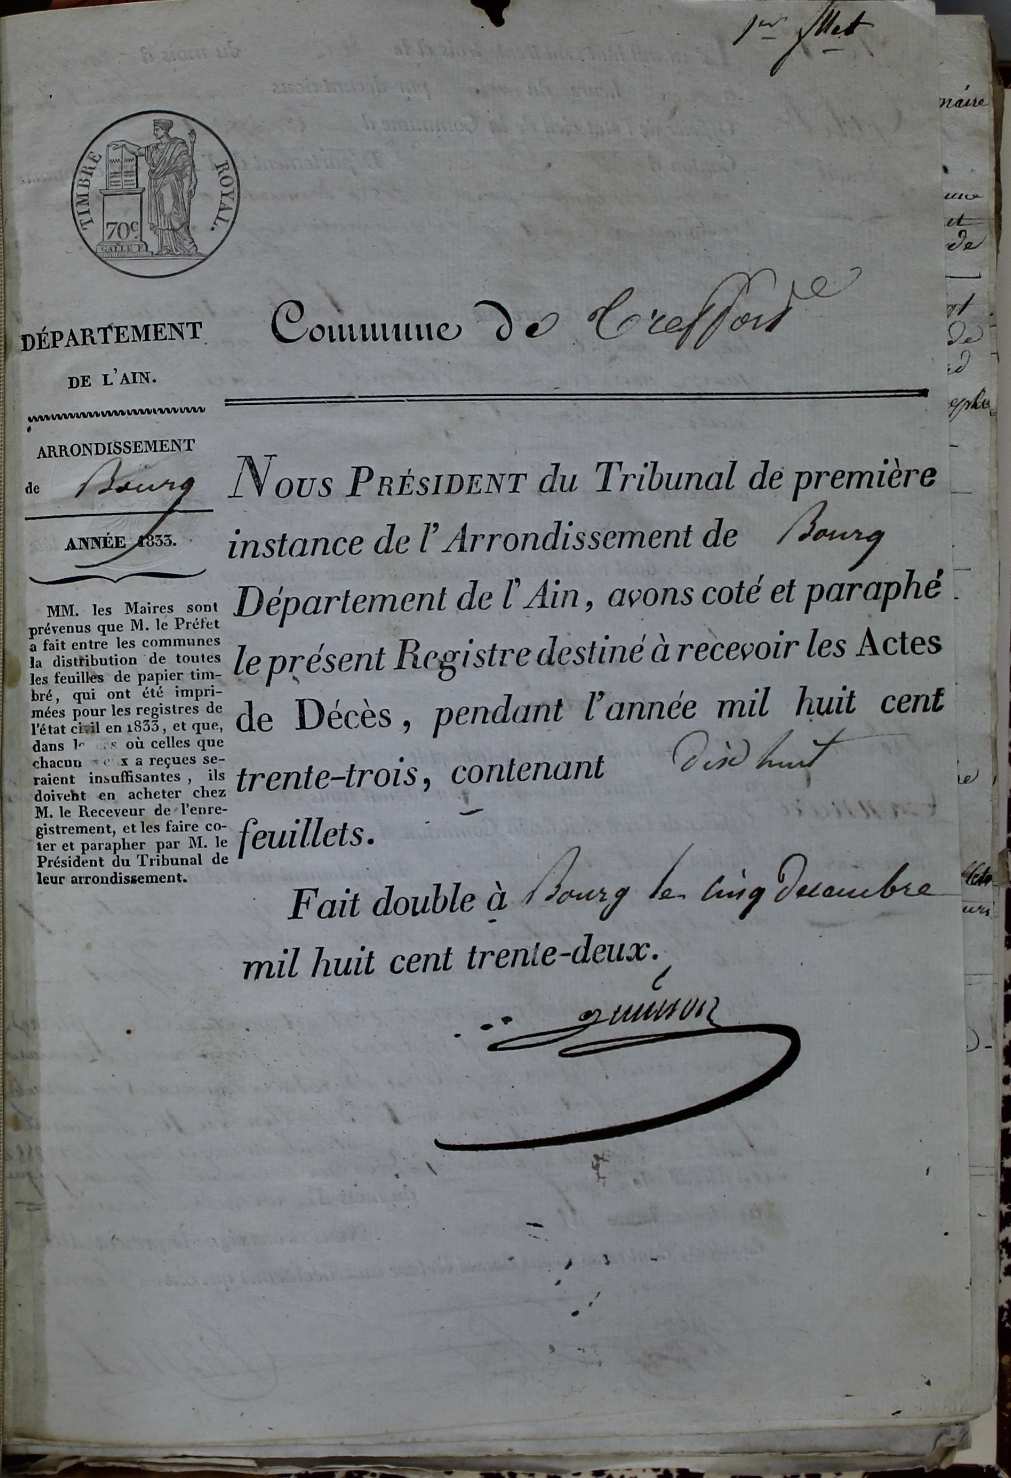 1er fllet
TIMBRE ROYAL.
70c
DÉPARTEMENT
DE L'AIN.
ARRONDISSEMENT
de Bourg
ANNÉE 1833.
MM. les Maires sont
prévenus que M. le Préfet
a fait entre les communes
la distribution de toutes
les feuilles de papier tim-
bré, qui ont été impri-
mées pour les registres de
l'état civil en 1833, et que,
dans le cas où celles que
chacun d'eux a reçues se-
raient insuffisantes, ils
doivent en acheter chez
M. le Receveur de l'enre-
gistrement, et les faire co-
ter et parapher par M. le
Président du Tribunal de
leur arrondissement.
Commune de Treffort
NOUS PRÉSIDENT du Tribunal de première
instance de l'Arrondissement de Bourg
Département de l'Ain, avons coté et paraphé
le présent Registre destiné à recevoir les Actes
de Décès, pendant l'année mil huit cent
trente-trois, contenant dix huit
feuillets.
Fait double à Bourg le cinq Decembre
mil huit cent trente-deux.